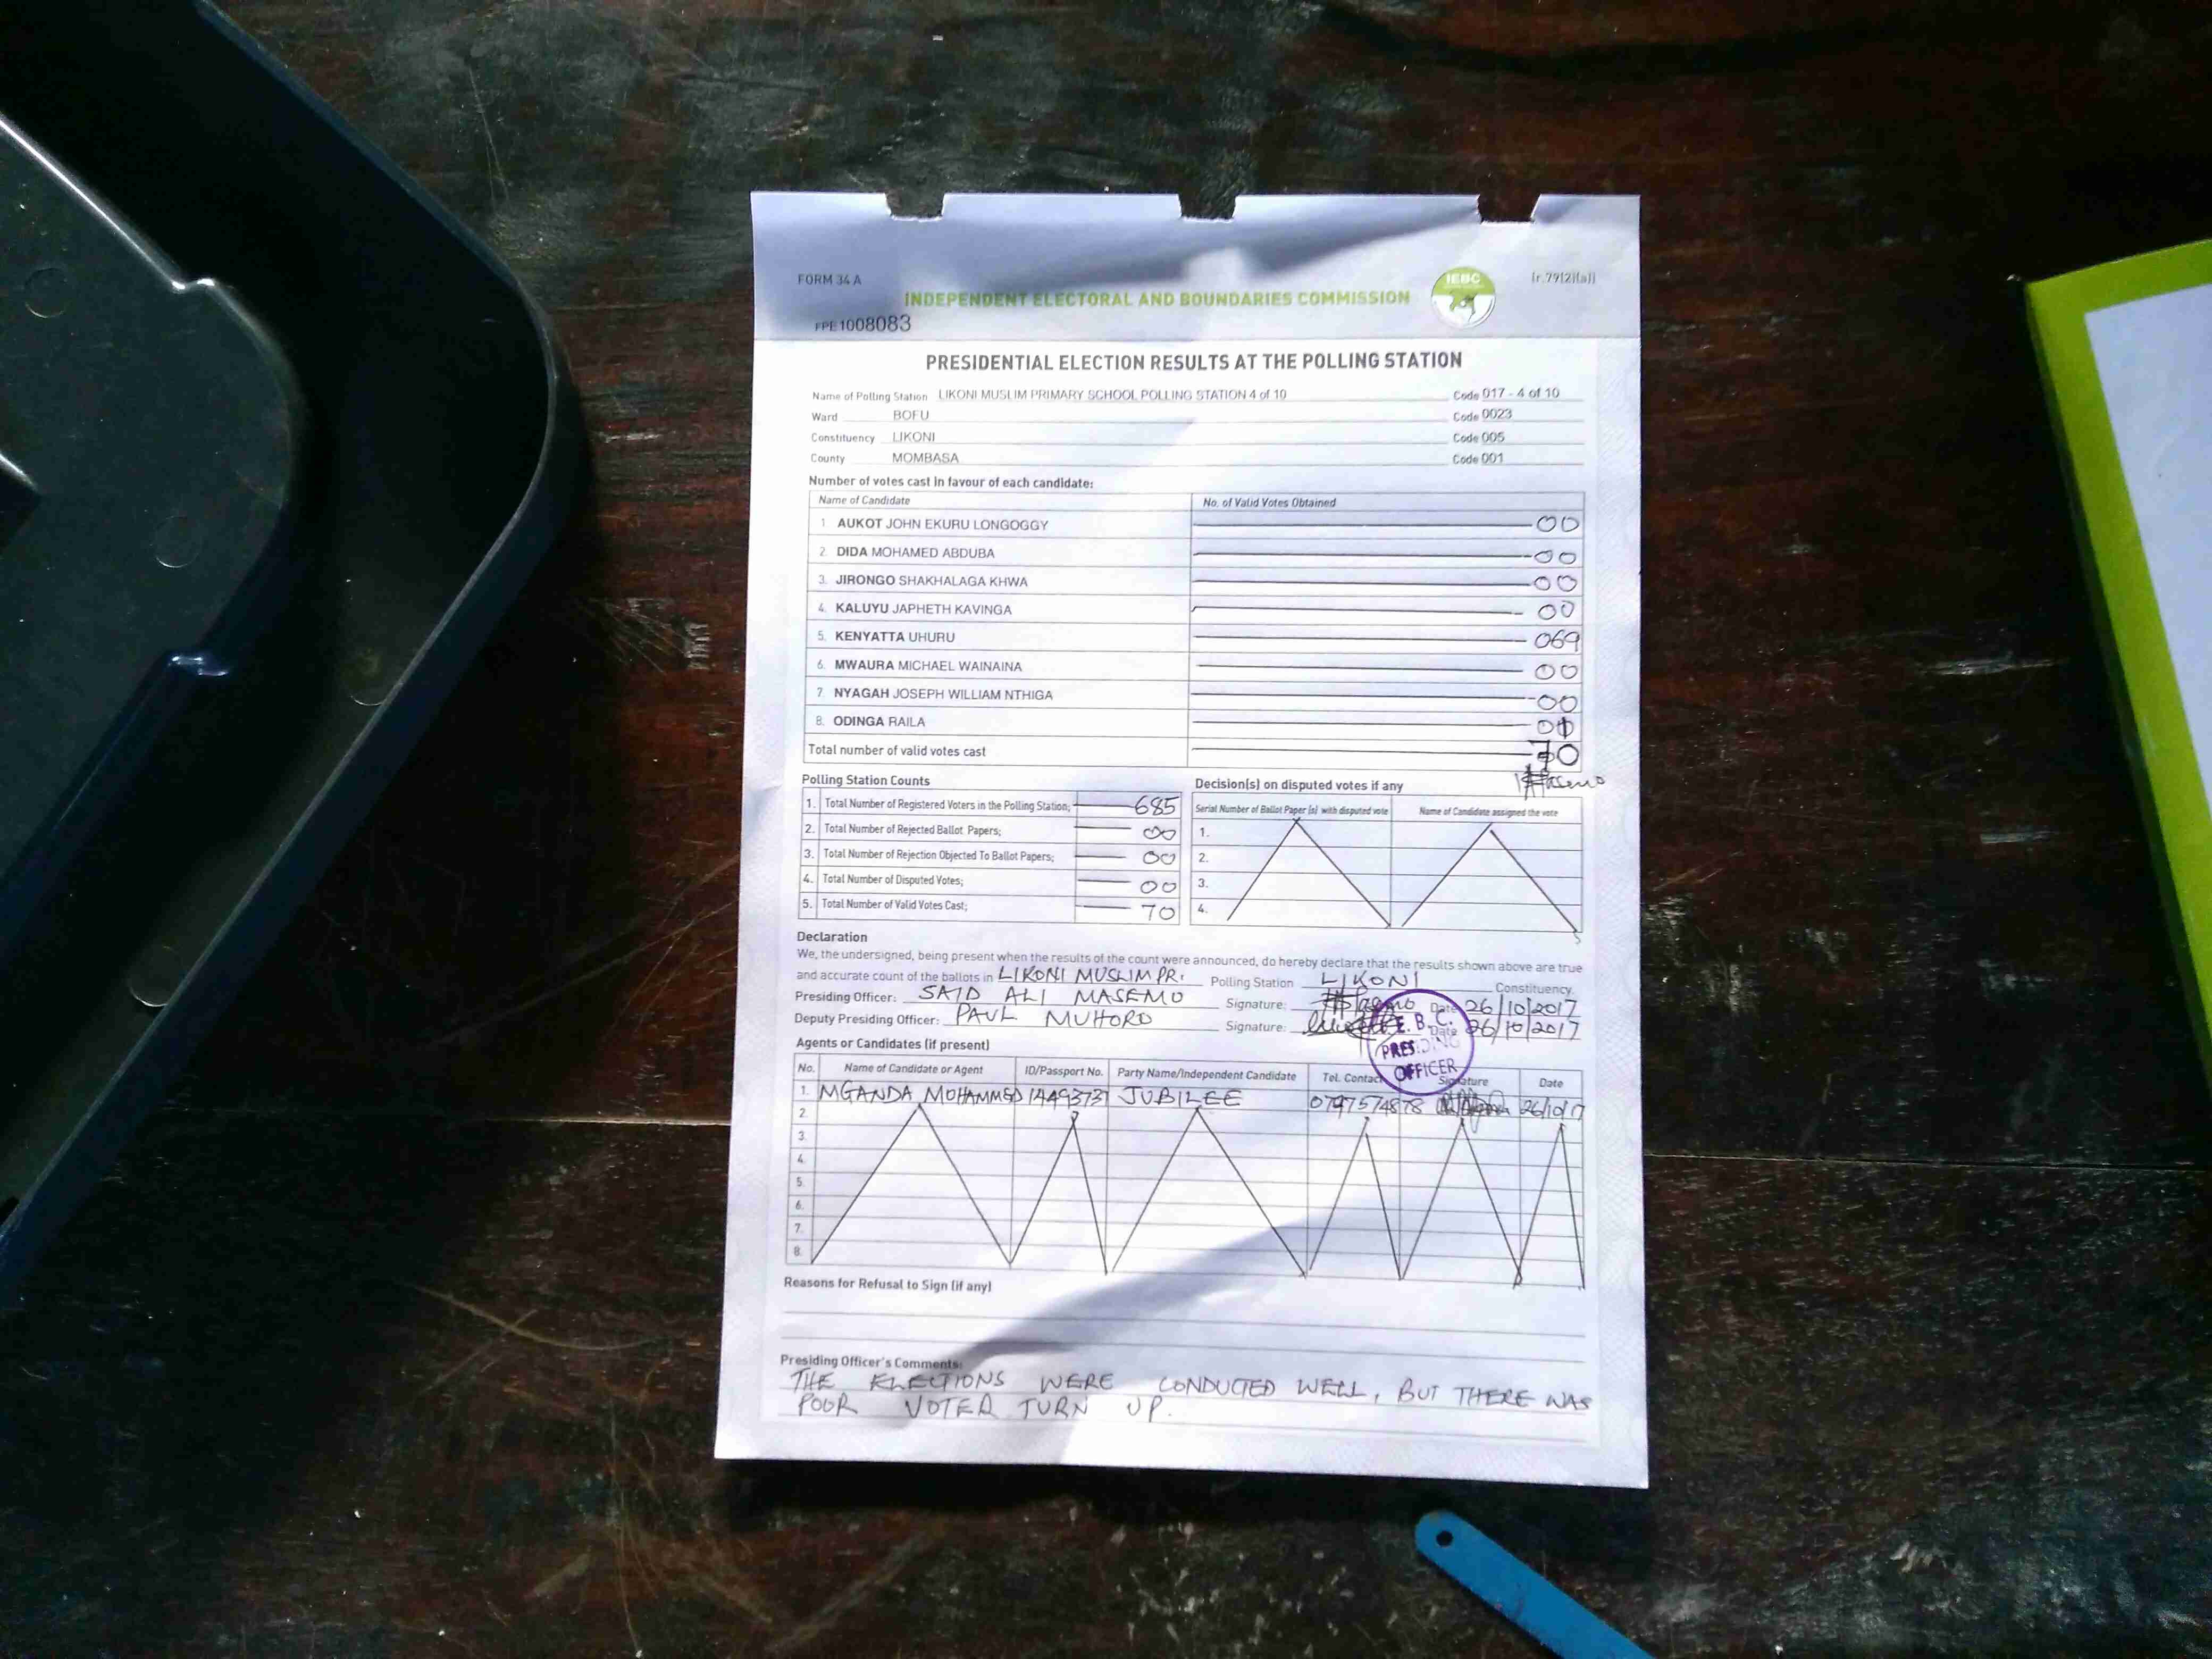 FORM 34 A
IEBC
(r.79(2)(a))
INDEPENDENT ELECTORAL AND BOUNDARIES COMMISSION
FPE1008083
PRESIDENTIAL ELECTION RESULTS AT THE POLLING STATION
Name of Polling Station LIKONI MUSLIM PRIMARY SCHOOL POLLING STATION 4 of 10 Code 017 - 4 of 10
Ward BOFU Code 0023
Constituency LIKONI Code 005
County MOMBASA Code 001
Number of votes cast in favour of each candidate:
Name of Candidate No. of Valid Votes Obtained
1 AUKOT JOHN EKURU LONGOGGY 00
2. DIDA MOHAMED ABDUBA 00
3. JIRONGO SHAKHALAGA KHWA 00
4. KALUYU JAPHETH KAVINGA 00
5. KENYATTA UHURU 069
6. MWAURA MICHAEL WAINAINA 00
7. NYAGAH JOSEPH WILLIAM NTHIGA 00
8. ODINGA RAILA 01
Total number of valid votes cast 70
Polling Station Counts
1. Total Number of Registered Voters in the Polling Station; 685
2. Total Number of Rejected Ballot Papers; 00
3. Total Number of Rejection Objected To Ballot Papers; 00
4. Total Number of Disputed Votes; 00
5. Total Number of Valid Votes Cast; 70
Decision(s) on disputed votes if any
Serial Number of Ballot Paper (s) with disputed vote Name of Candidate assigned the vote
1.
2.
3.
4.
Declaration
We, the undersigned, being present when the results of the count were announced, do hereby declare that the results shown above are true
and accurate count of the ballots in LIKONI MUSLIM PR. Polling Station LIKONI Constituency.
Presiding Officer: SAID ALI MASEMO Signature: Date 26/10/2017
Deputy Presiding Officer: PAUL MUHORO Signature: Date 26/10/2017
E. B. C.
PRESIDING
OFFICER
Agents or Candidates (if present)
No. Name of Candidate or Agent ID/Passport No. Party Name/Independent Candidate Tel. Contact Signature Date
1. MGANDA MOHAMMED 14493731 JUBILEE 0797574878 26/10/17
2.
3.
4.
5.
6.
7.
8.
Reasons for Refusal to Sign (if any)
Presiding Officer's Comments:
THE ELECTIONS WERE CONDUCTED WELL, BUT THERE WAS
POOR VOTER TURN UP.